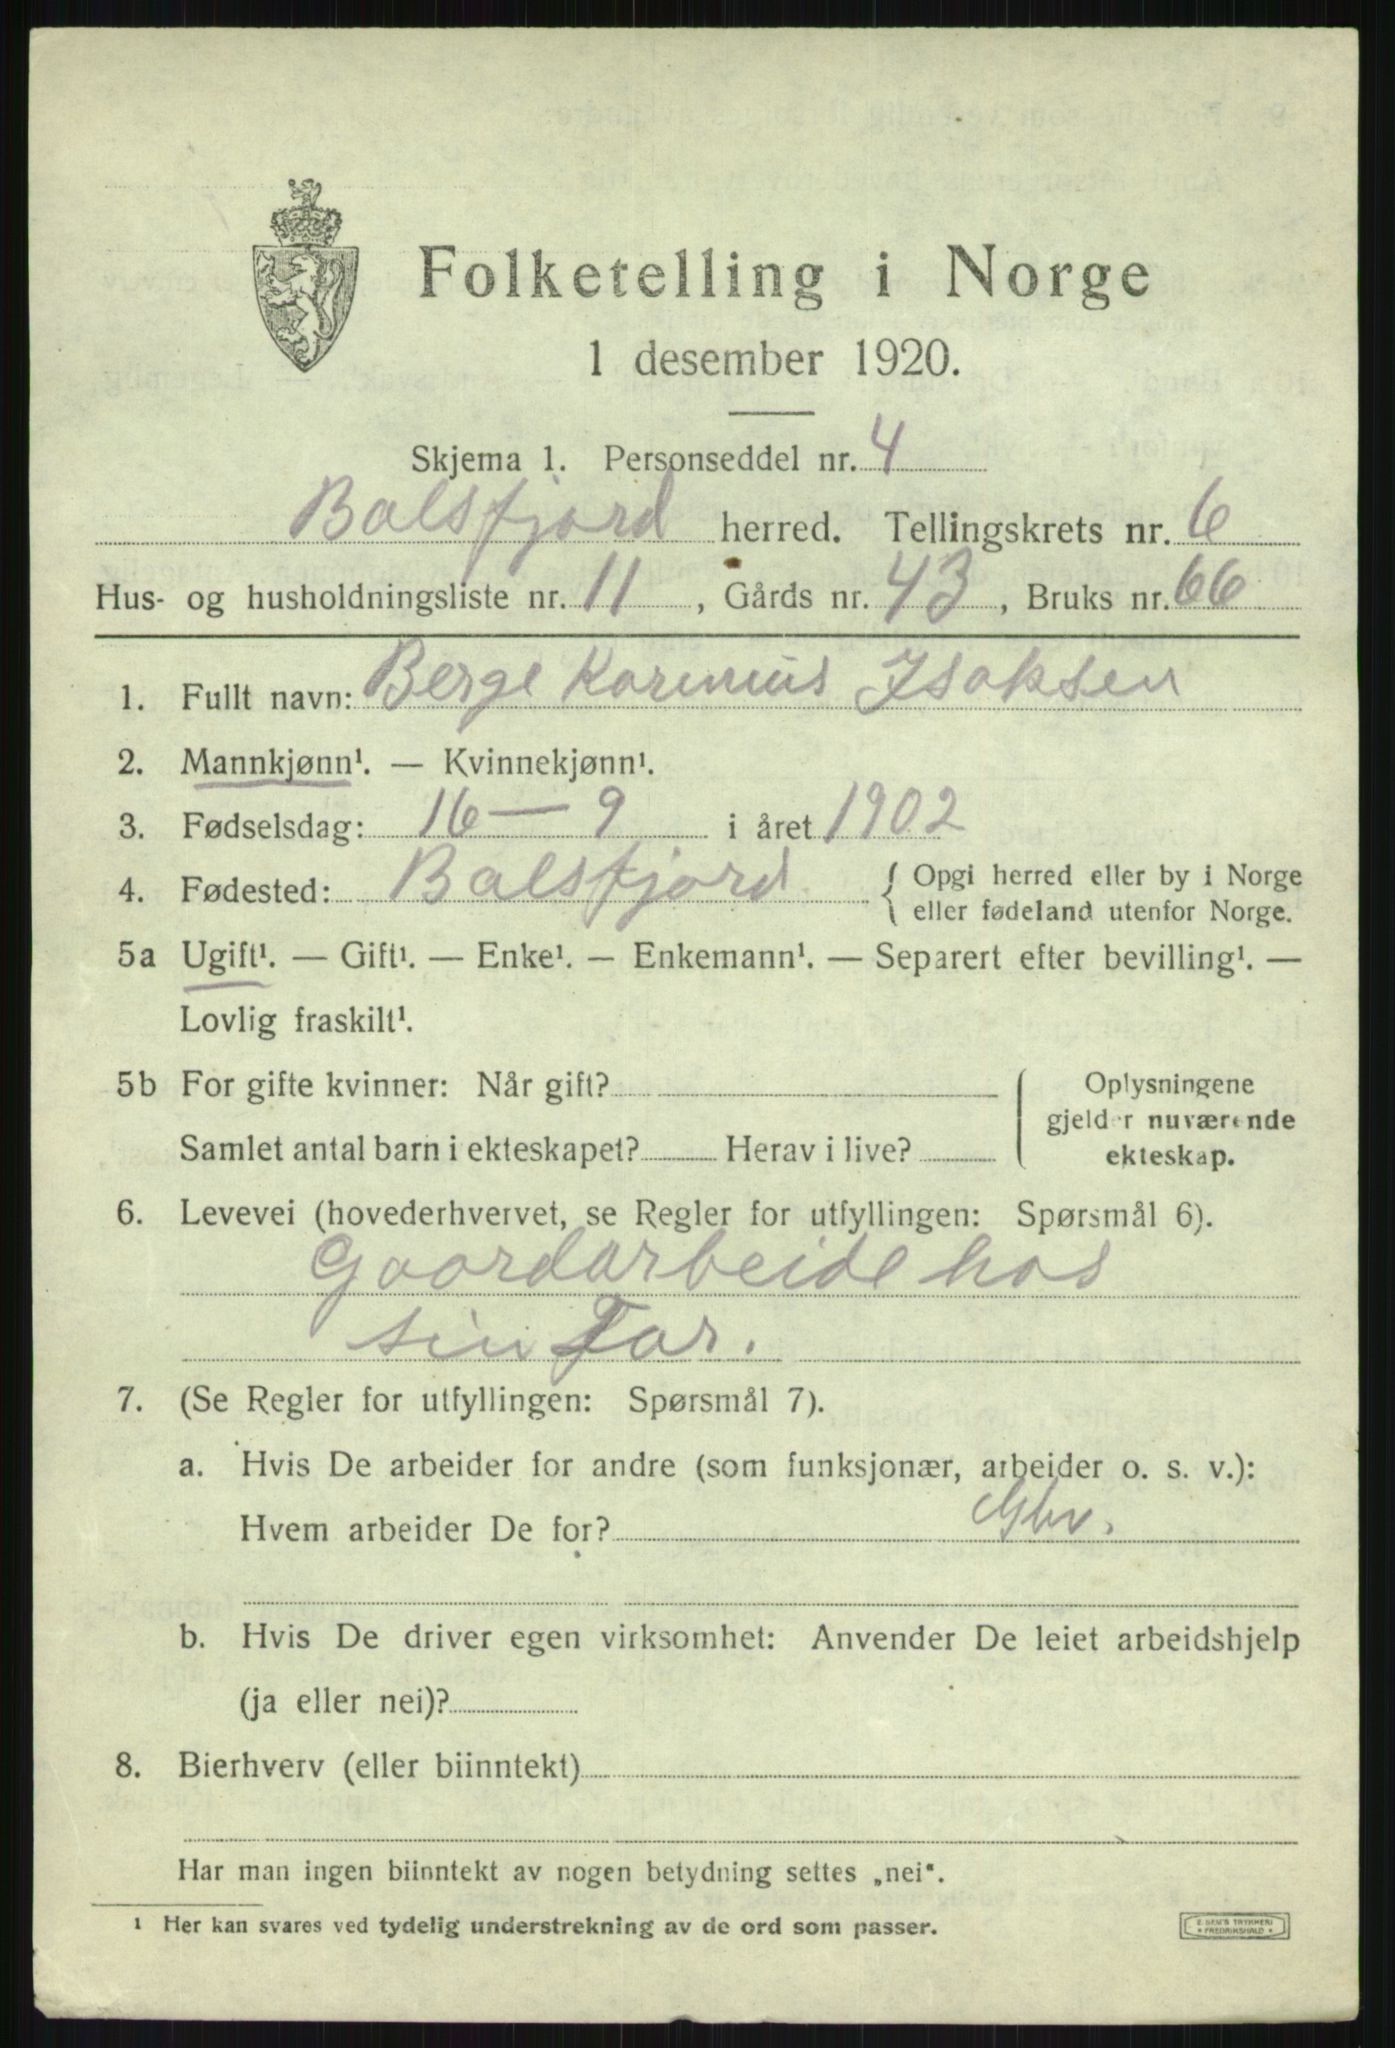 Folketelling i Norge
1 desember 1920.
Skjema 1. Personseddel nr. 4
Balsfjord herred. Tellingskrets nr. 6
Hus- og husholdningsliste nr. 11, Gårds nr. 43, Bruks nr. 66
1. Fullt navn: Berge Karenius Isaksen
2. Mannkjønn¹. — Kvinnekjønn¹.
3. Fødselsdag: 16 — 9 i året 1902
4. Fødested: Balsfjord { Opgi herred eller by i Norge
eller fødeland utenfor Norge.
5a Ugift¹. — Gift¹. — Enke¹. — Enkemann¹. — Separert efter bevilling¹. —
Lovlig fraskilt¹.
5b For gifte kvinner: Når gift?
Samlet antal barn i ekteskapet? Herav i live?
Oplysningene
gjelder nuværende
ekteskap.
6. Levevei (hovederhvervet, se Regler for utfyllingen: Spørsmål 6).
Gaardarbeide hos
sin Far.
7. (Se Regler for utfyllingen: Spørsmål 7).
a. Hvis De arbeider for andre (som funksjonær, arbeider o. s. v.):
Hvem arbeider De for? Gbr.
b. Hvis De driver egen virksomhet: Anvender De leiet arbeidshjelp
(ja eller nei)?
8. Bierhverv (eller biinntekt)
Har man ingen biinntekt av nogen betydning settes „nei“.
¹ Her kan svares ved tydelig understrekning av de ord som passer.
E. SEM'S TRYKKERI
* FREDRIKSHALD *